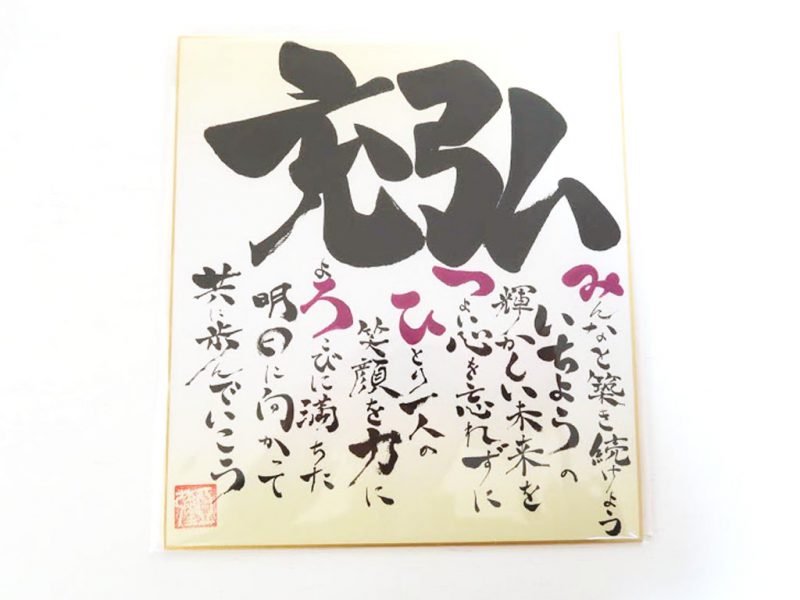 充弘
みんなと築き続けよう
いちようの
輝かしい未来を
つよい心を忘れずに
ひとり一人の
笑顔を力に
よろこびに満ちた
明日に向かって
共に歩んでいこう